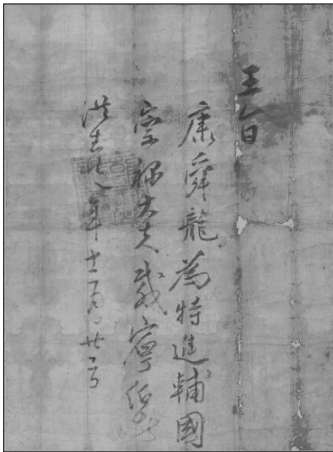 王旨
康舜龍爲特進輔國
崇祿大夫載寧伯者
洪武廿八年十二月廿二日